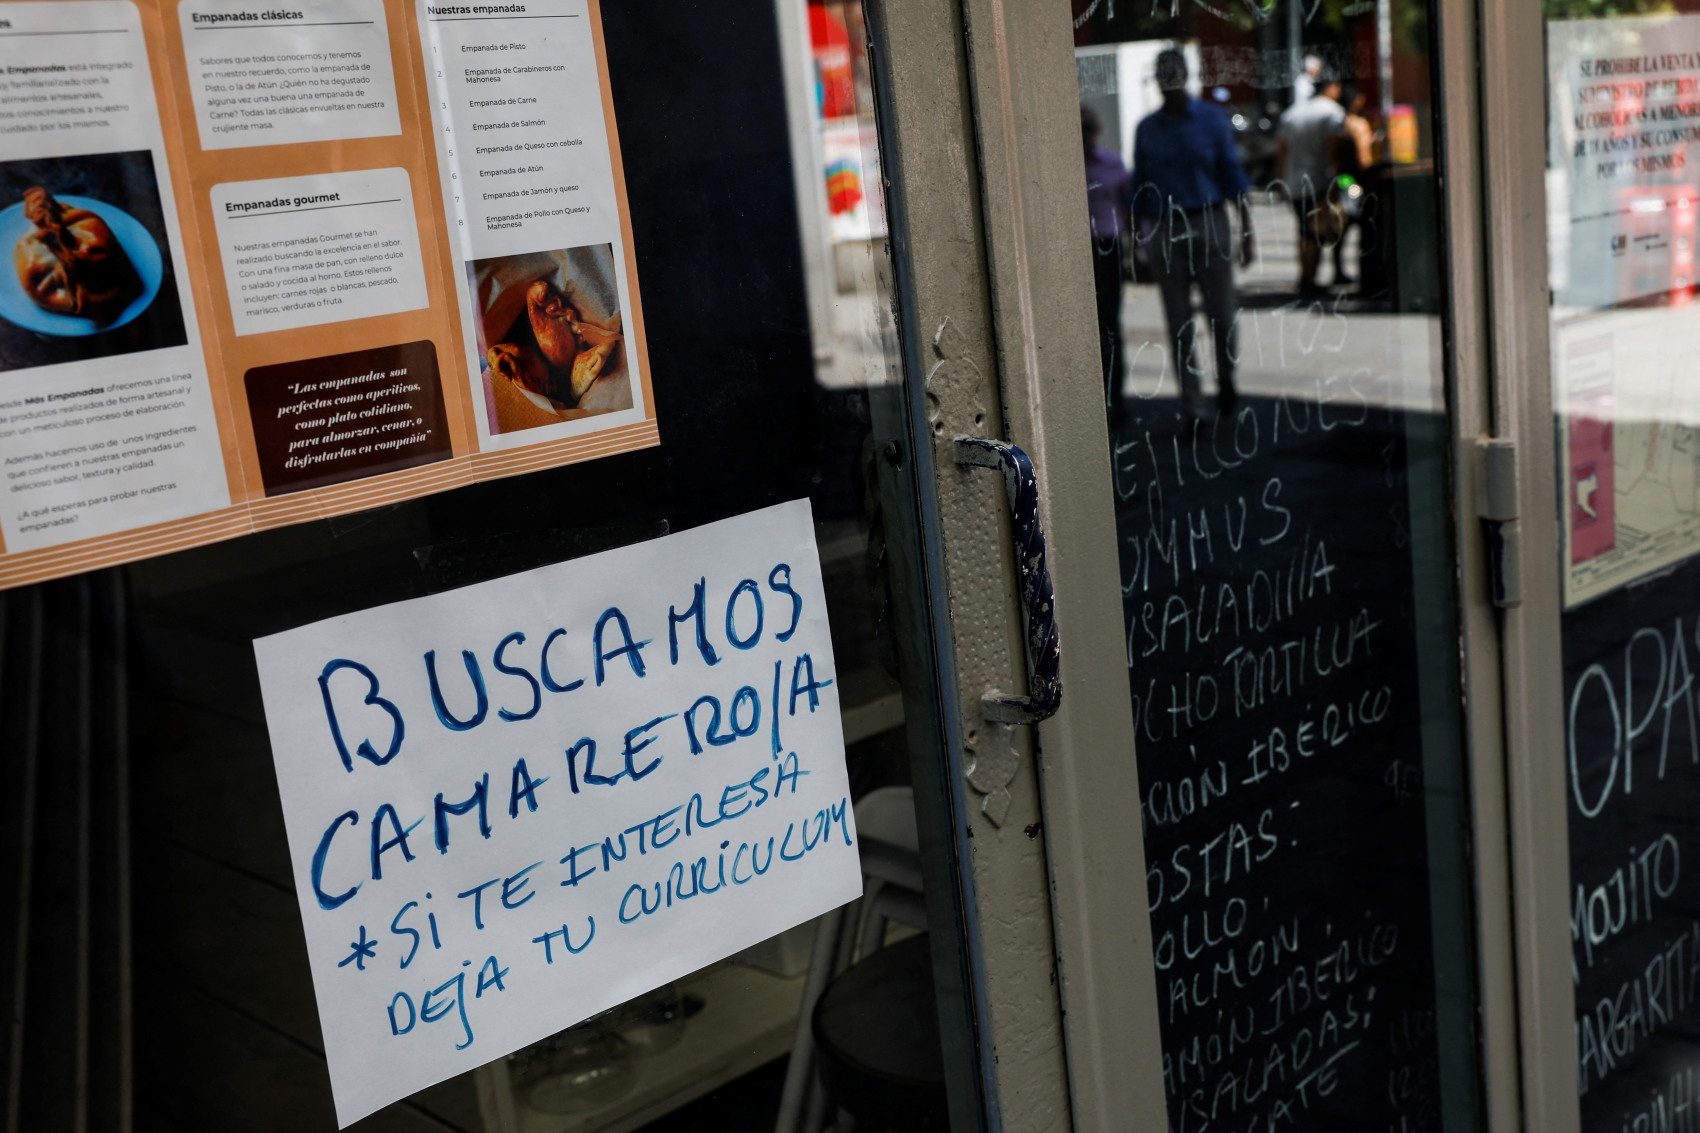 Empanadas está integrado
familiarializado con la
alimentos artesanales,
conocimientos a nuestro
cuidado por los mismos.
Más Empanadas ofrecemos una línea
de productos realizados de forma artesanal y
con un meticuloso proceso de elaboración.
Además hacemos uso de unos ingredientes
que confieren a nuestras empanadas un
delicioso sabor, textura y calidad.
¿A qué esperas para probar nuestras
empanadas?
Empanadas clásicas
Sabores que todos conocemos y tenemos
en nuestro recuerdo, como la empanada de
Pisto, o la de Atún ¿Quién no ha degustado
alguna vez una buena una empanada de
Carne? Todas las clásicas envueltas en nuestra
crujiente masa.
Empanadas gourmet
Nuestras empanadas Gourmet se han
realizado buscando la excelencia en el sabor.
Con una fina masa de pan, con relleno dulce
o salado y cocida al horno. Estos rellenos
incluyen: carnes rojas o blancas, pescado,
marisco, verduras o fruta.
“Las empanadas son
perfectas como aperitivos,
como plato cotidiano,
para almorzar, cenar, o
disfrutarlas en compañía”
Nuestras empanadas
1 Empanada de Pisto
2 Empanada de Carabineros con
Mahonesa
3 Empanada de Carne
4 Empanada de Salmón
5 Empanada de Queso con cebolla
6 Empanada de Atún
7 Empanada de Jamón y queso
8 Empanada de Pollo con Queso y
Mahonesa
BUSCAMOS
CAMARERO/A
*SI TE INTERESA
DEJA TU CURRICULUM
EJILLONES
UMMUS
NSALADILLA
CHO TORTILLA
CIÓN IBÉRICO
OSTAS:
OLLO.
ALMON.
AMÓN IBERICO
NSALADAS:
CATE
SE PROHIBE LA VENTA Y
SUMINISTRO DE BEBIDAS
ALCOHÓLICAS A MENORES
DE 18 AÑOS Y SU CONSUMO
POR LOS MISMOS
OPA
MOJITO
MARGARITA